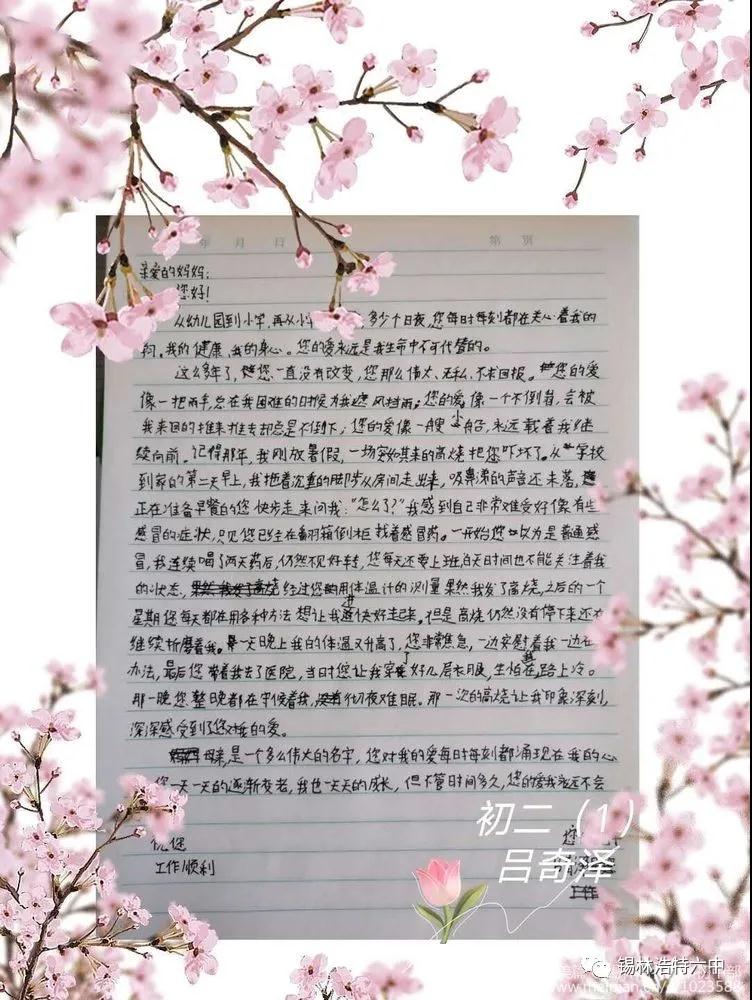 年 月 日 第 页
亲爱的妈妈：
您好！
从幼儿园到小学，再从小 多少个日夜，您每时每刻都在关心着我的
我的健康、我的身心。您的爱永远是我生命中不可代替的。
这么多年了，您一直没有改变，您那么伟大、无私、不求回报。您的爱
像一把雨伞，总在我困难的时候为我遮风挡雨；您的爱像一个不倒翁，会被
我来回的推来推去却总是不倒下；您的爱像一艘小船，永远载着我继
续向前。记得那年，我刚放暑假，一场突如其来的高烧把您吓坏了。从学校
到家的第二天早上，我拖着沉重的脚步从房间走出来，吸鼻涕的声音还未落，
正在准备早餐的您快步走来问我：“怎么了？”我感到自己非常难受好像有些
感冒的症状，只见您已经在翻箱倒柜找着感冒药。一开始您以为是普通感
冒，我连续喝了两天药后，仍然不见好转，您每天还要上班白天时间也不能关注着我
的状态，经过您用体温计的测量果然我发了高烧，之后的一个
星期您每天都在用各种方法想让我快好起来。但是高烧仍然没有停下来还在
继续折磨着我。一天晚上我的体温又升高了，您非常焦急，一边安慰着我一边在
办法，最后您带着我去了医院，当时您让我穿了好几层衣服，生怕我在路上冷。
那一晚您整晚都在守候着我，彻夜难眠。那一次的高烧让我印象深刻，
深深感受到了您对我的爱。
母亲是一个多么伟大的名字，您对我的爱每时每刻都涌现在我的心
您一天一天的逐渐变老，我也一天天的成长，但不管时间多久，您的爱我永远不会
祝您
工作顺利
您
初二（1）
吕奇泽
锡林浩特六中